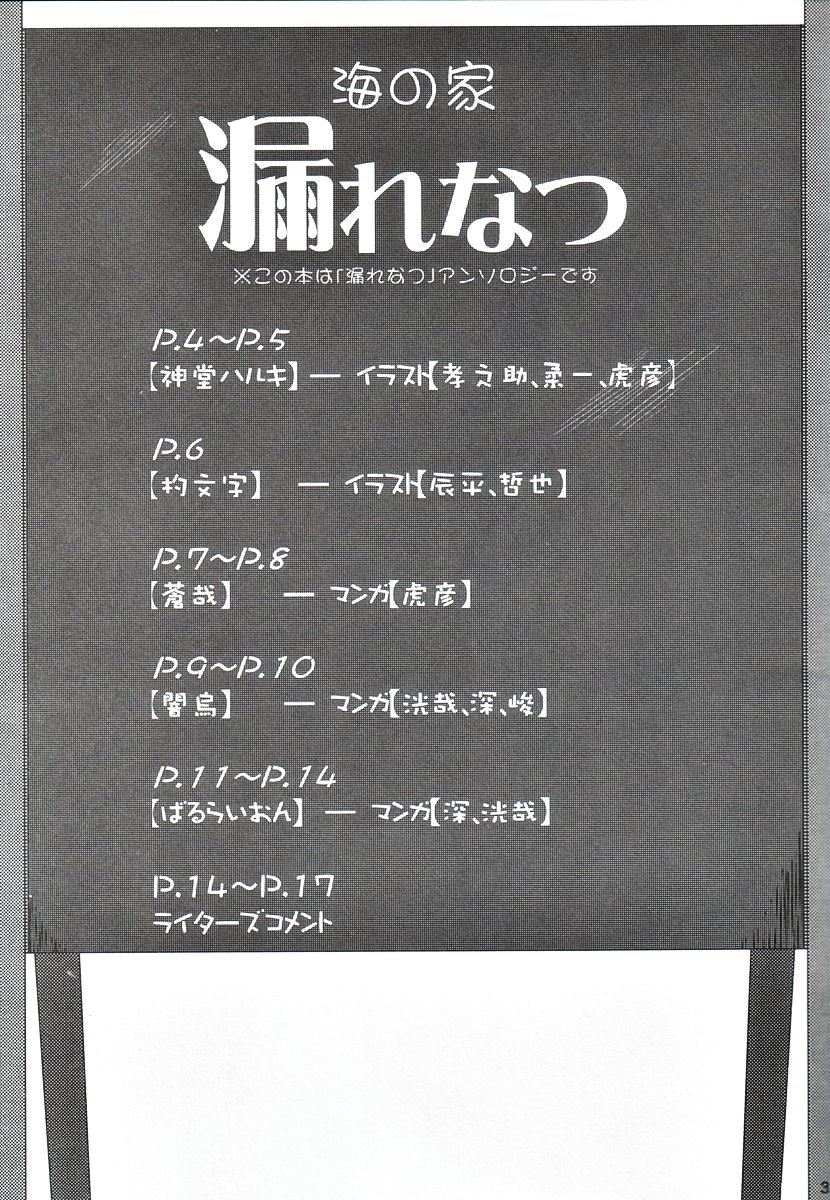 海の家
漏れなつ
※この本は「漏れなつ」アンソロジーです
P.4～P.5
【神堂ハルキ】― イラスト【孝之助、柔一、虎彦】
P.6
【杓文字】 ― イラスト【辰平、哲也】
P.7～P.8
【蒼哉】 ― マンガ【虎彦】
P.9～P.10
【闇烏】 ― マンガ【洸哉、深、峻】
P.11～P.14
【ばるらいおん】― マンガ【深、洸哉】
P.14～P.17
ライターズコメント
3